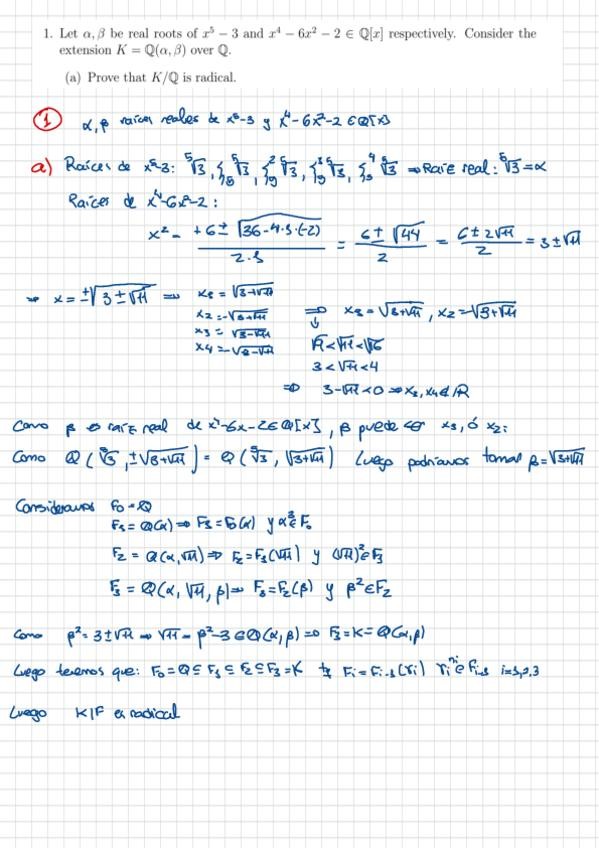 1. Let α, β be real roots of x⁵ − 3 and x⁴ − 6x² − 2 ∈ ℚ[x] respectively. Consider the
extension K = ℚ(α, β) over ℚ.
(a) Prove that K/ℚ is radical.
① α, β raíces reales de x⁵-3 y x⁴-6x²-2 ∈ ℚ[x]
a) Raíces de x⁵-3: ⁵√3, ⁵√3, ⁵√3, ⁵√3, ⁵√3 ⇒ Raíz real: ⁵√3 = α
Raíces de x⁴-6x²-2:
x² = (+6 ± √(36-4·1·(-2)))/(2·1) = (6 ± √44)/2 = (6 ± 2√11)/2 = 3 ± √11
⇒ x = ±√(3±√11) ⇒ x₁ = √(3+√11)
x₂ = -√(3+√11) ⇒ x₁ = √(3+√11), x₂ = -√(3+√11)
x₃ = √(3-√11) ↓ √9 < √11 < √16
x₄ = -√(3-√11) 3 < √11 < 4
⇒ 3-√11 < 0 ⇒ x₃, x₄ ∉ ℝ
Como β es raíz real de x⁴-6x-2 ∈ ℚ[x], β puede ser x₁ ó x₂:
Como ℚ(⁵√3, ±√(3+√11)) = ℚ(⁵√3, √(3+√11)) Luego podríamos tomar β = √(3+√11)
Consideramos F₀ = ℚ
F₁ = ℚ(α) ⇒ F₁ = F₀(α) y α⁵ ∈ F₀
F₂ = ℚ(α, √11) ⇒ F₂ = F₁(√11) y (√11)² ∈ F₁
F₃ = ℚ(α, √11, β) ⇒ F₃ = F₂(β) y β² ∈ F₂
Como β² = 3 ± √11 ⇒ √11 = β²-3 ∈ ℚ(α, β) ⇒ F₃ = K = ℚ(α, β)
Luego tenemos que: F₀ = ℚ ⊆ F₁ ⊆ F₂ ⊆ F₃ = K tq Fᵢ = Fᵢ₋₁(rᵢ) rᵢⁿⁱ ∈ Fᵢ₋₁ i=1,2,3
Luego K|F es radical